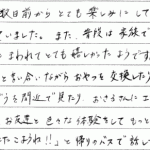 取日前からとても楽しみにして
ていました。また、普段は家族で
まわれてとても嬉しかったようです
と言い合いながらおやつを交換したり
うを間近で見たり おさるさんに
お友達と色々な体験をしてもっと
たこようね!!」と帰りのバスで話し